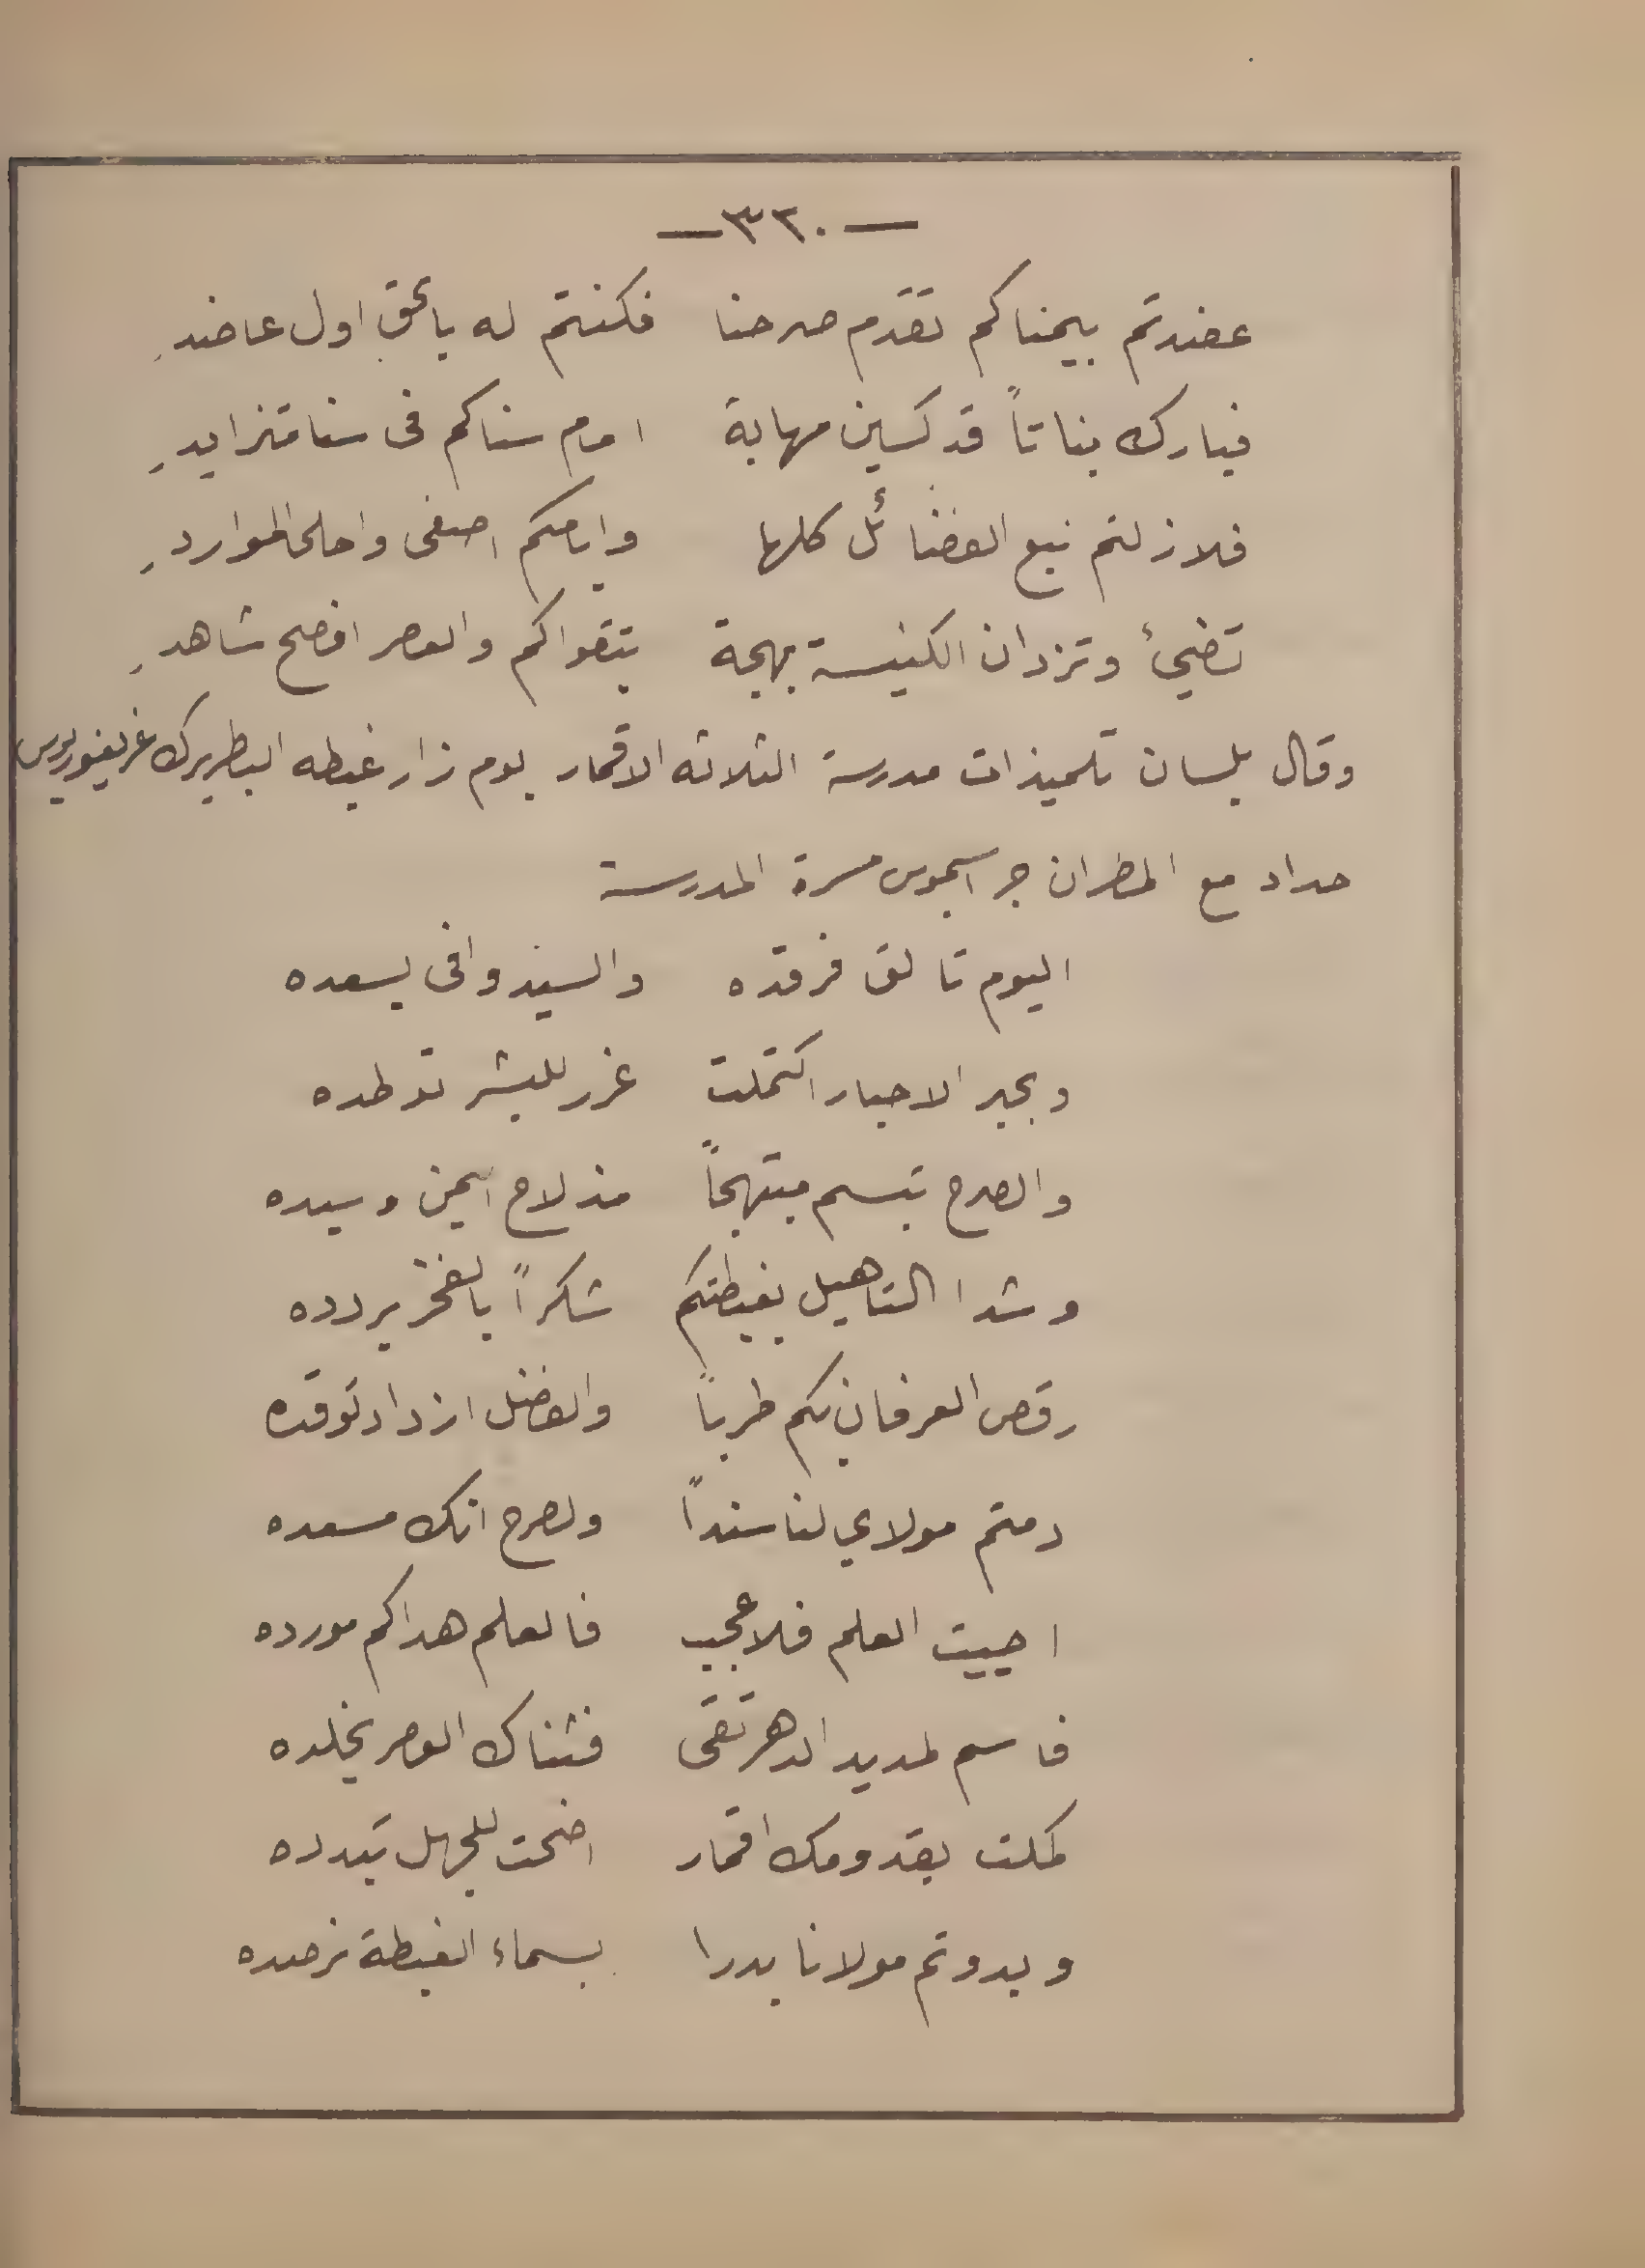 — ٣٢٠ —
عضدتم بيمناكم تقدم صرحنا فكنتم له بالحق اول عاضدِ
فبارك بناتاً قد كسين مهابة امام سناكم فى سنا متزايدِ
فلا زلتم نبع الفضائل كلها وايامكم اصفى واحلى المواردِ
تضيئ وتزدان الكنيسة بهجة بتقواكم والعصر افصح شاهدِ
وقال بلسان تلميذات مدرسة الثلاثه الاقمار يوم زار غبطه البطريرك غريغوريوس
حداد مع المطران جراسيموس مسرة المدرسة
اليوم تالق فرقده والسيد وافى يسعده
وبحبر الاحبار اكتملت غرر للبشر توطده
والصرح تبسم مبتهجاً مذ لاح ايمن وسيده
وشدا التاهيل بغبطتكم شكراً بالفخر يردده
رقص العرفان بكم طرباً والفضل ازداد توقده
دمتم مولاي لنا سنداً ولصرح انك مسعده
احييت العلم فلا عجب فالعلم هداكم مورده
فاسم لمديد الدهر تقى فثناك العصر يخلده
كملت بقدومك اقمار اضحت للجهل تبدده
وبدوتم مولانا بدرا بسماء الغبطة نرصده